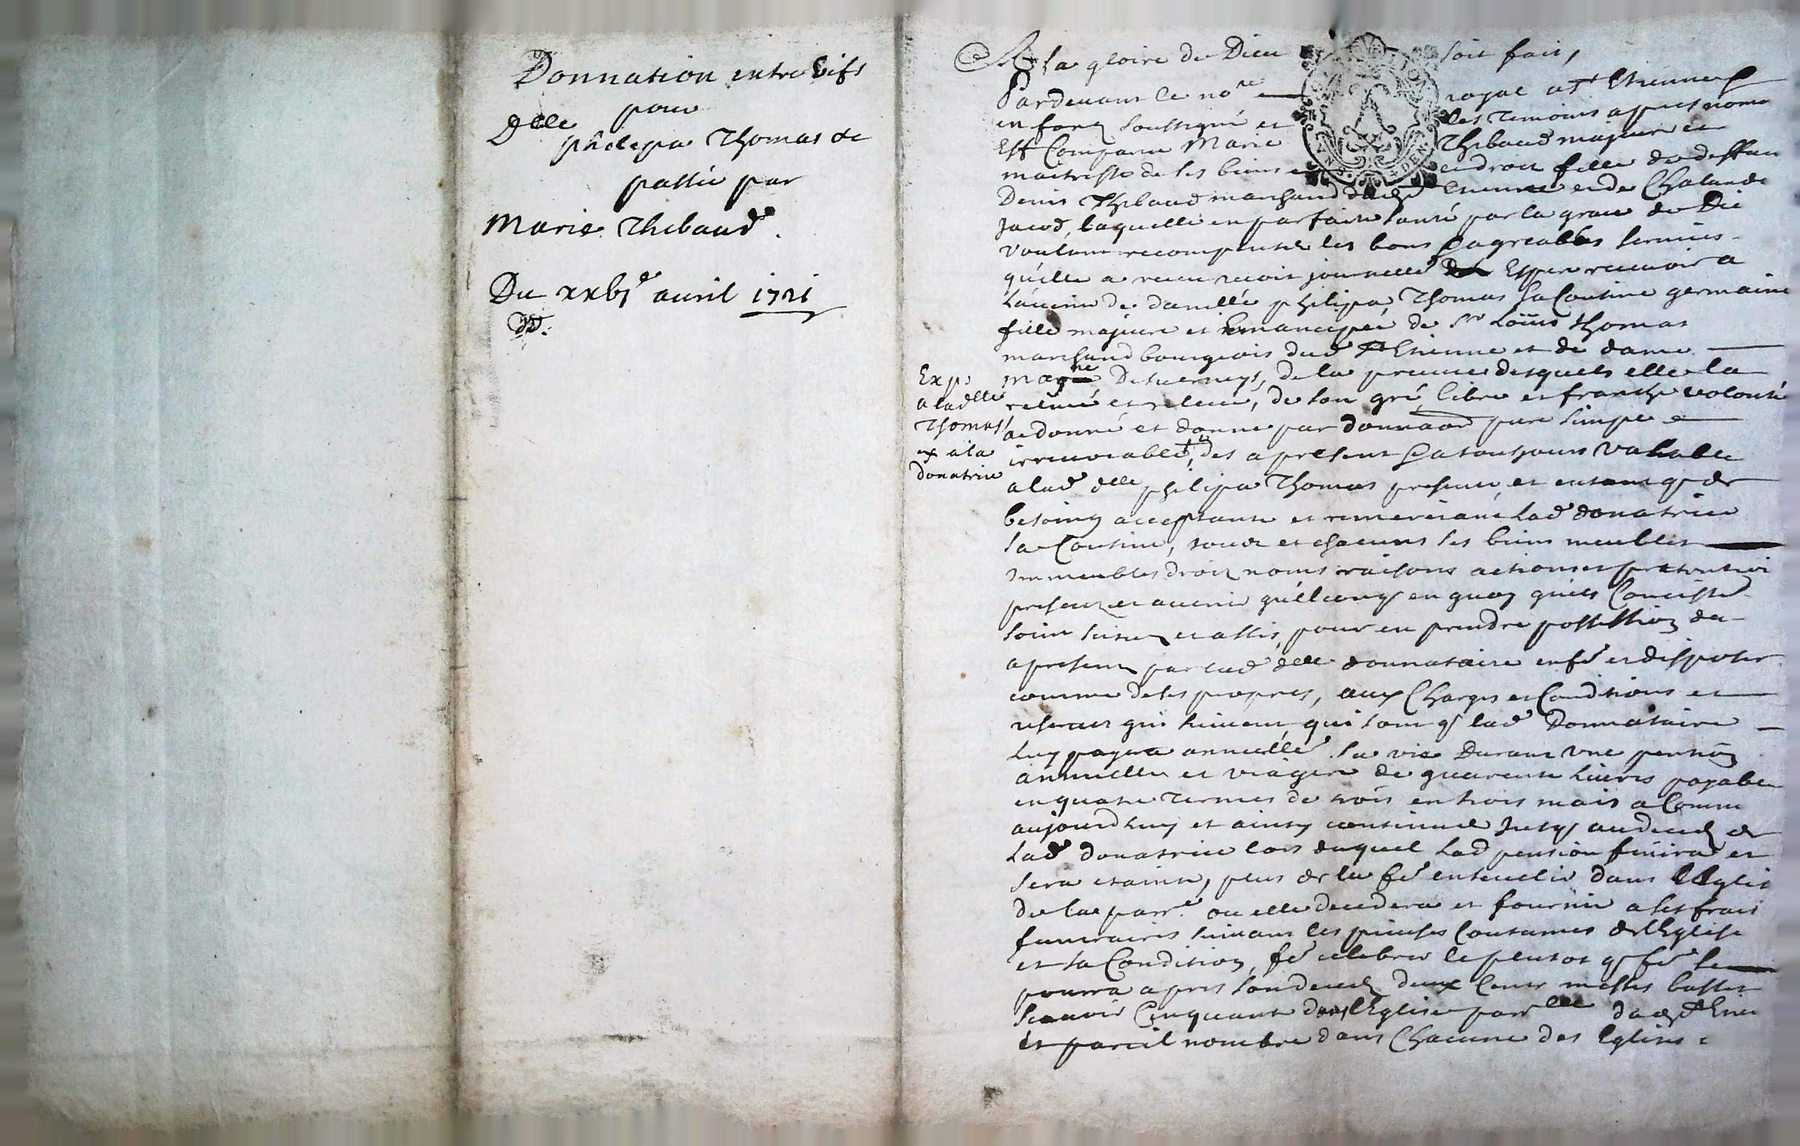 Donnation entre vifs
pour
Delle philipa Thomas de
passée par
Marie Thibaud.
Du xxbj avril 1721
A la gloire de Dieu soit fait,
Pardevant le nore royal a St Etienne
en forez soussigné et les temoins apres nomes
Est Comparue Marie Thibaud majeure et
maitresse de ses biens et droit fille de deffun
Denis Thibaud marchand dud St Etienne et de Chatande
Jacod, laquelle en parfaite santé par la grace de Die
voulant recompenser les bons & agreables services
qu'elle a receu recoit journellet & Espere recevoir a
l'avenir de damlle philipa Thomas sa Cousine germaine
fille majeure et Emancipée de Sr Louis Thomas
marchand bourgeois dud St Etienne et de dame
magne Desverneys, de la preuve desquels elle la
relevé et releve, de son gré, libre et franche volonté
a donné et donne par donnaon pure simple et
irrevocable, des a present & a tousjours valable
a lad delle philipa Thomas presente et entant q de
besoing acceptante et remerciant lad donatrice
sa Cousine, tous et chacuns ses biens meubles
Immeubles droits noms raisons actions et pretentions
presents et avenir qu'elconqs en quoy qu'ils Concistent
soint scitues et assis, pour en prendre possession des
a present par lad delle donnataire en fe et disposer
comme de ses propres, aux Charges et Conditions et
reserves qui suivent qui sont q lad Donnataire
luy payera annuellet sa vie Durant une pension
annuelle et viagere de quarente livres payable
en quatre termes de trois en trois mois a Comm
aujourdhuy et ainsy continuer jusqs au deceds de
lad donatrice lors duquel lad pension finira et
sera etainte, plus de la fe ensevelir dans l'Eglise
de la parre ou elle decedera et fournir a ses frais
funeraires suivant les pieuses Coutumes de l'Eglise
et sa Condition, fe celebrer le plustot q fe se
pourra apres son deceds deux Cents messes basses
Scavoir Cinquante dans l'Eglise parrelle dud St Etien
et pareil nombre dans Chacune des Eglises
Exp.
a la delle
Thomas
ex a la
donatrice